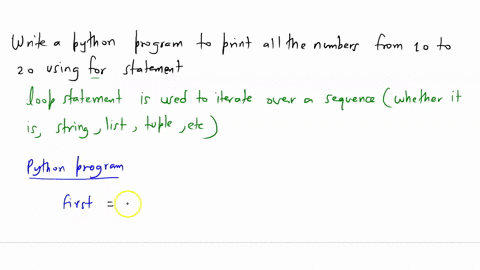 Write a python program to print all the numbers from 10 to
20 using for statement
loop statement is used to iterate over a sequence (whether it
is, string, list, tuple, etc)
Python program
first =